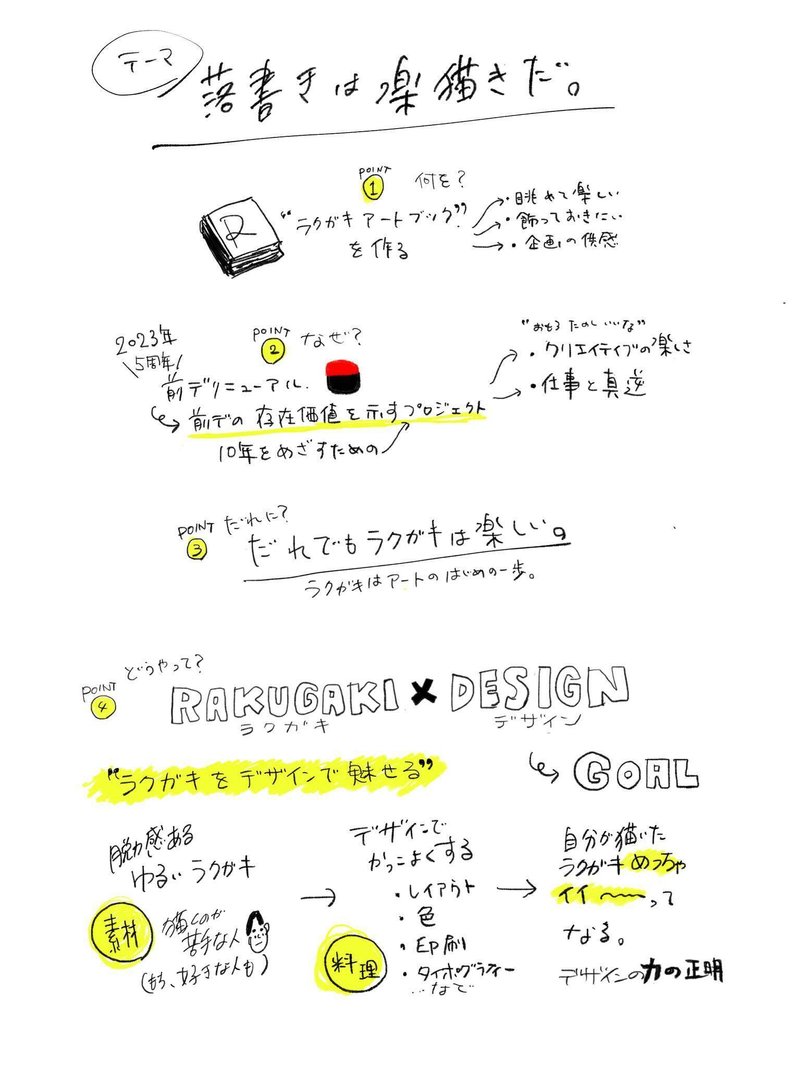 テーマ
落書きは楽描きだ。
POINT
1 何を?
R
"ラクガキアートブック"
を作る
・眺めて楽しい
・飾っておきたい
・企画の共感
2023年
5周年!
POINT
2 なぜ?
前デリニューアル.
前デの存在価値を示すプロジェクト
10年をめざすための
"おもろたのしいいな"
・クリエイティブの楽しさ
・仕事と真逆
POINT
3 だれに?
だれでもラクガキは楽しい。
ラクガキはアートのはじめの一歩。
POINT
4 どうやって?
RAKUGAKI × DESIGN
ラクガキ デザイン
"ラクガキをデザインで魅せる"
GOAL
脱力感ある
ゆるいラクガキ
素材
描くのが
苦手な人
(もち、好きな人も)
デザインで
かっこよくする
・レイアウト
・色
・印刷
・タイポグラフィー
…などで
料理
自分が描いた
ラクガキめっちゃ
イイ〜〜って
なる。
デザインの力の正明